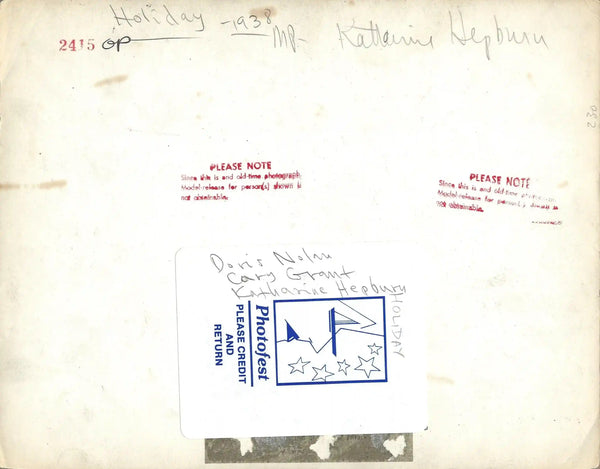 Holiday - 1938
MP- Katharine Hepburn
2415 OP
092
PLEASE NOTE
Since this is and old-time photograph
Model-release for person(s) shown is
not obtainable.
PLEASE NOTE
Since this is and old-time
Model-release for person(s) shown is
not obtainable.
Doris Nolan
Cary Grant
Katharine Hepburn
HOLIDAY
Photofest
PLEASE CREDIT
AND
RETURN